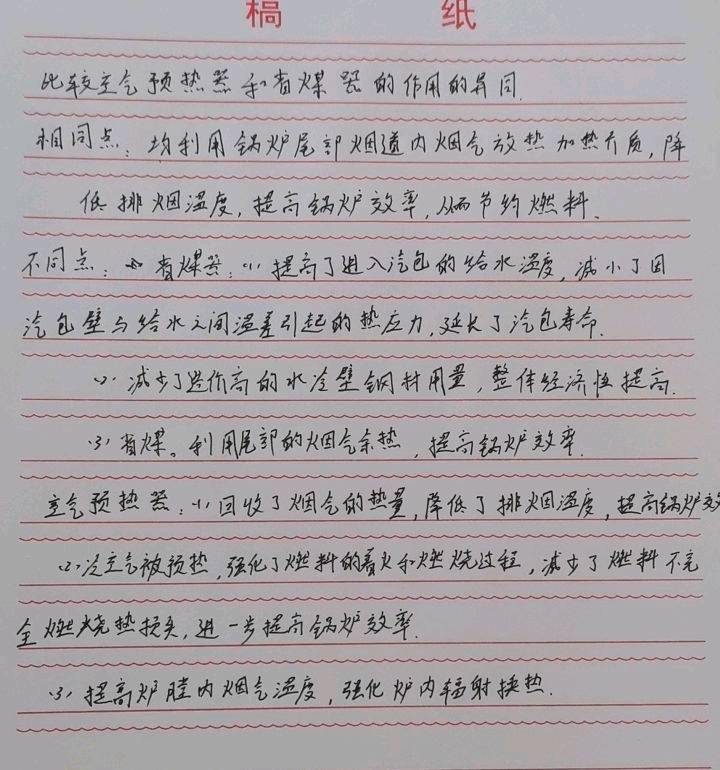 稿 纸
比较空气预热器和省煤器的作用的异同.
相同点：均利用锅炉尾部烟道内烟气放热加热介质，降
低排烟温度，提高锅炉效率，从而节约燃料.
不同点： 省煤器：(1) 提高了进入汽包的给水温度，减小了因
汽包壁与给水之间温差引起的热应力，延长了汽包寿命.
(2) 减少了造价高的水冷壁钢材用量，整体经济性提高.
(3) 省煤。利用尾部的烟气余热，提高锅炉效率.
空气预热器：(1) 回收了烟气的热量，降低了排烟温度，提高锅炉效
(2) 冷空气被预热，强化了燃料的着火和燃烧过程，减少了燃料不完
全燃烧热损失，进一步提高锅炉效率.
(3) 提高炉膛内烟气温度，强化炉内辐射换热.